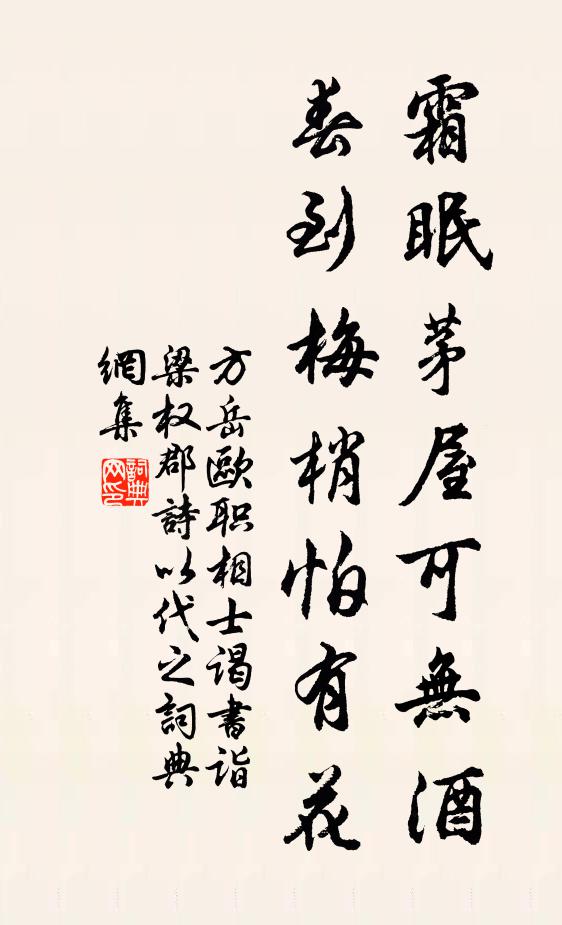 霜眠茅屋可無酒
春到梅梢怕有花
方岳歐职相士谒書诣
梁权郡詩以代之詞典
網集
詞典
网印